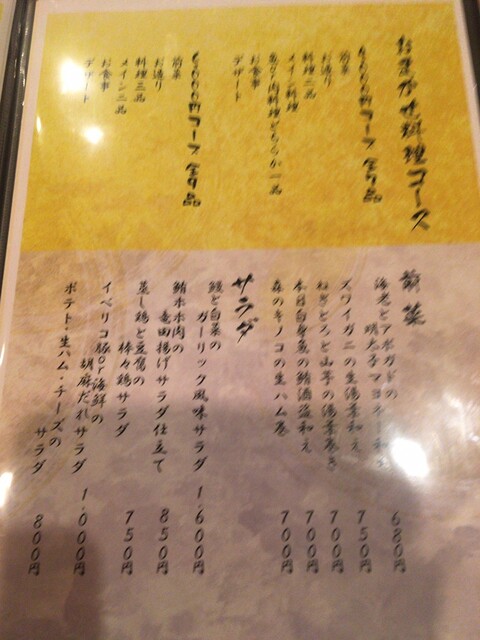 おまかせ料理コース
5000円コース 全7品
前菜
お造り
料理二品
メイン料理
魚か肉料理どちらか一品
お食事
デザート
6000円コース 全9品
前菜
お造り
料理三品
メイン二品
お食事
デザート
前菜
海老とアボガドの
明太子マヨネーズ和え
680円
ズワイガニの生湯葉和え
750円
ねぎとろと山芋の湯葉巻き
700円
本日白身魚の鮪酒盗和え
700円
森のキノコの生ハム巻
700円
サラダ
鰻と白菜の
ガーリック風味サラダ
1.600円
鮪ホホ肉の
竜田揚げサラダ仕立て
850円
蒸し鶏と豆腐の
棒々鶏サラダ
750円
イベリコ豚or海鮮の
胡麻だれサラダ
1.000円
ポテト・生ハム・チーズの
サラダ
800円